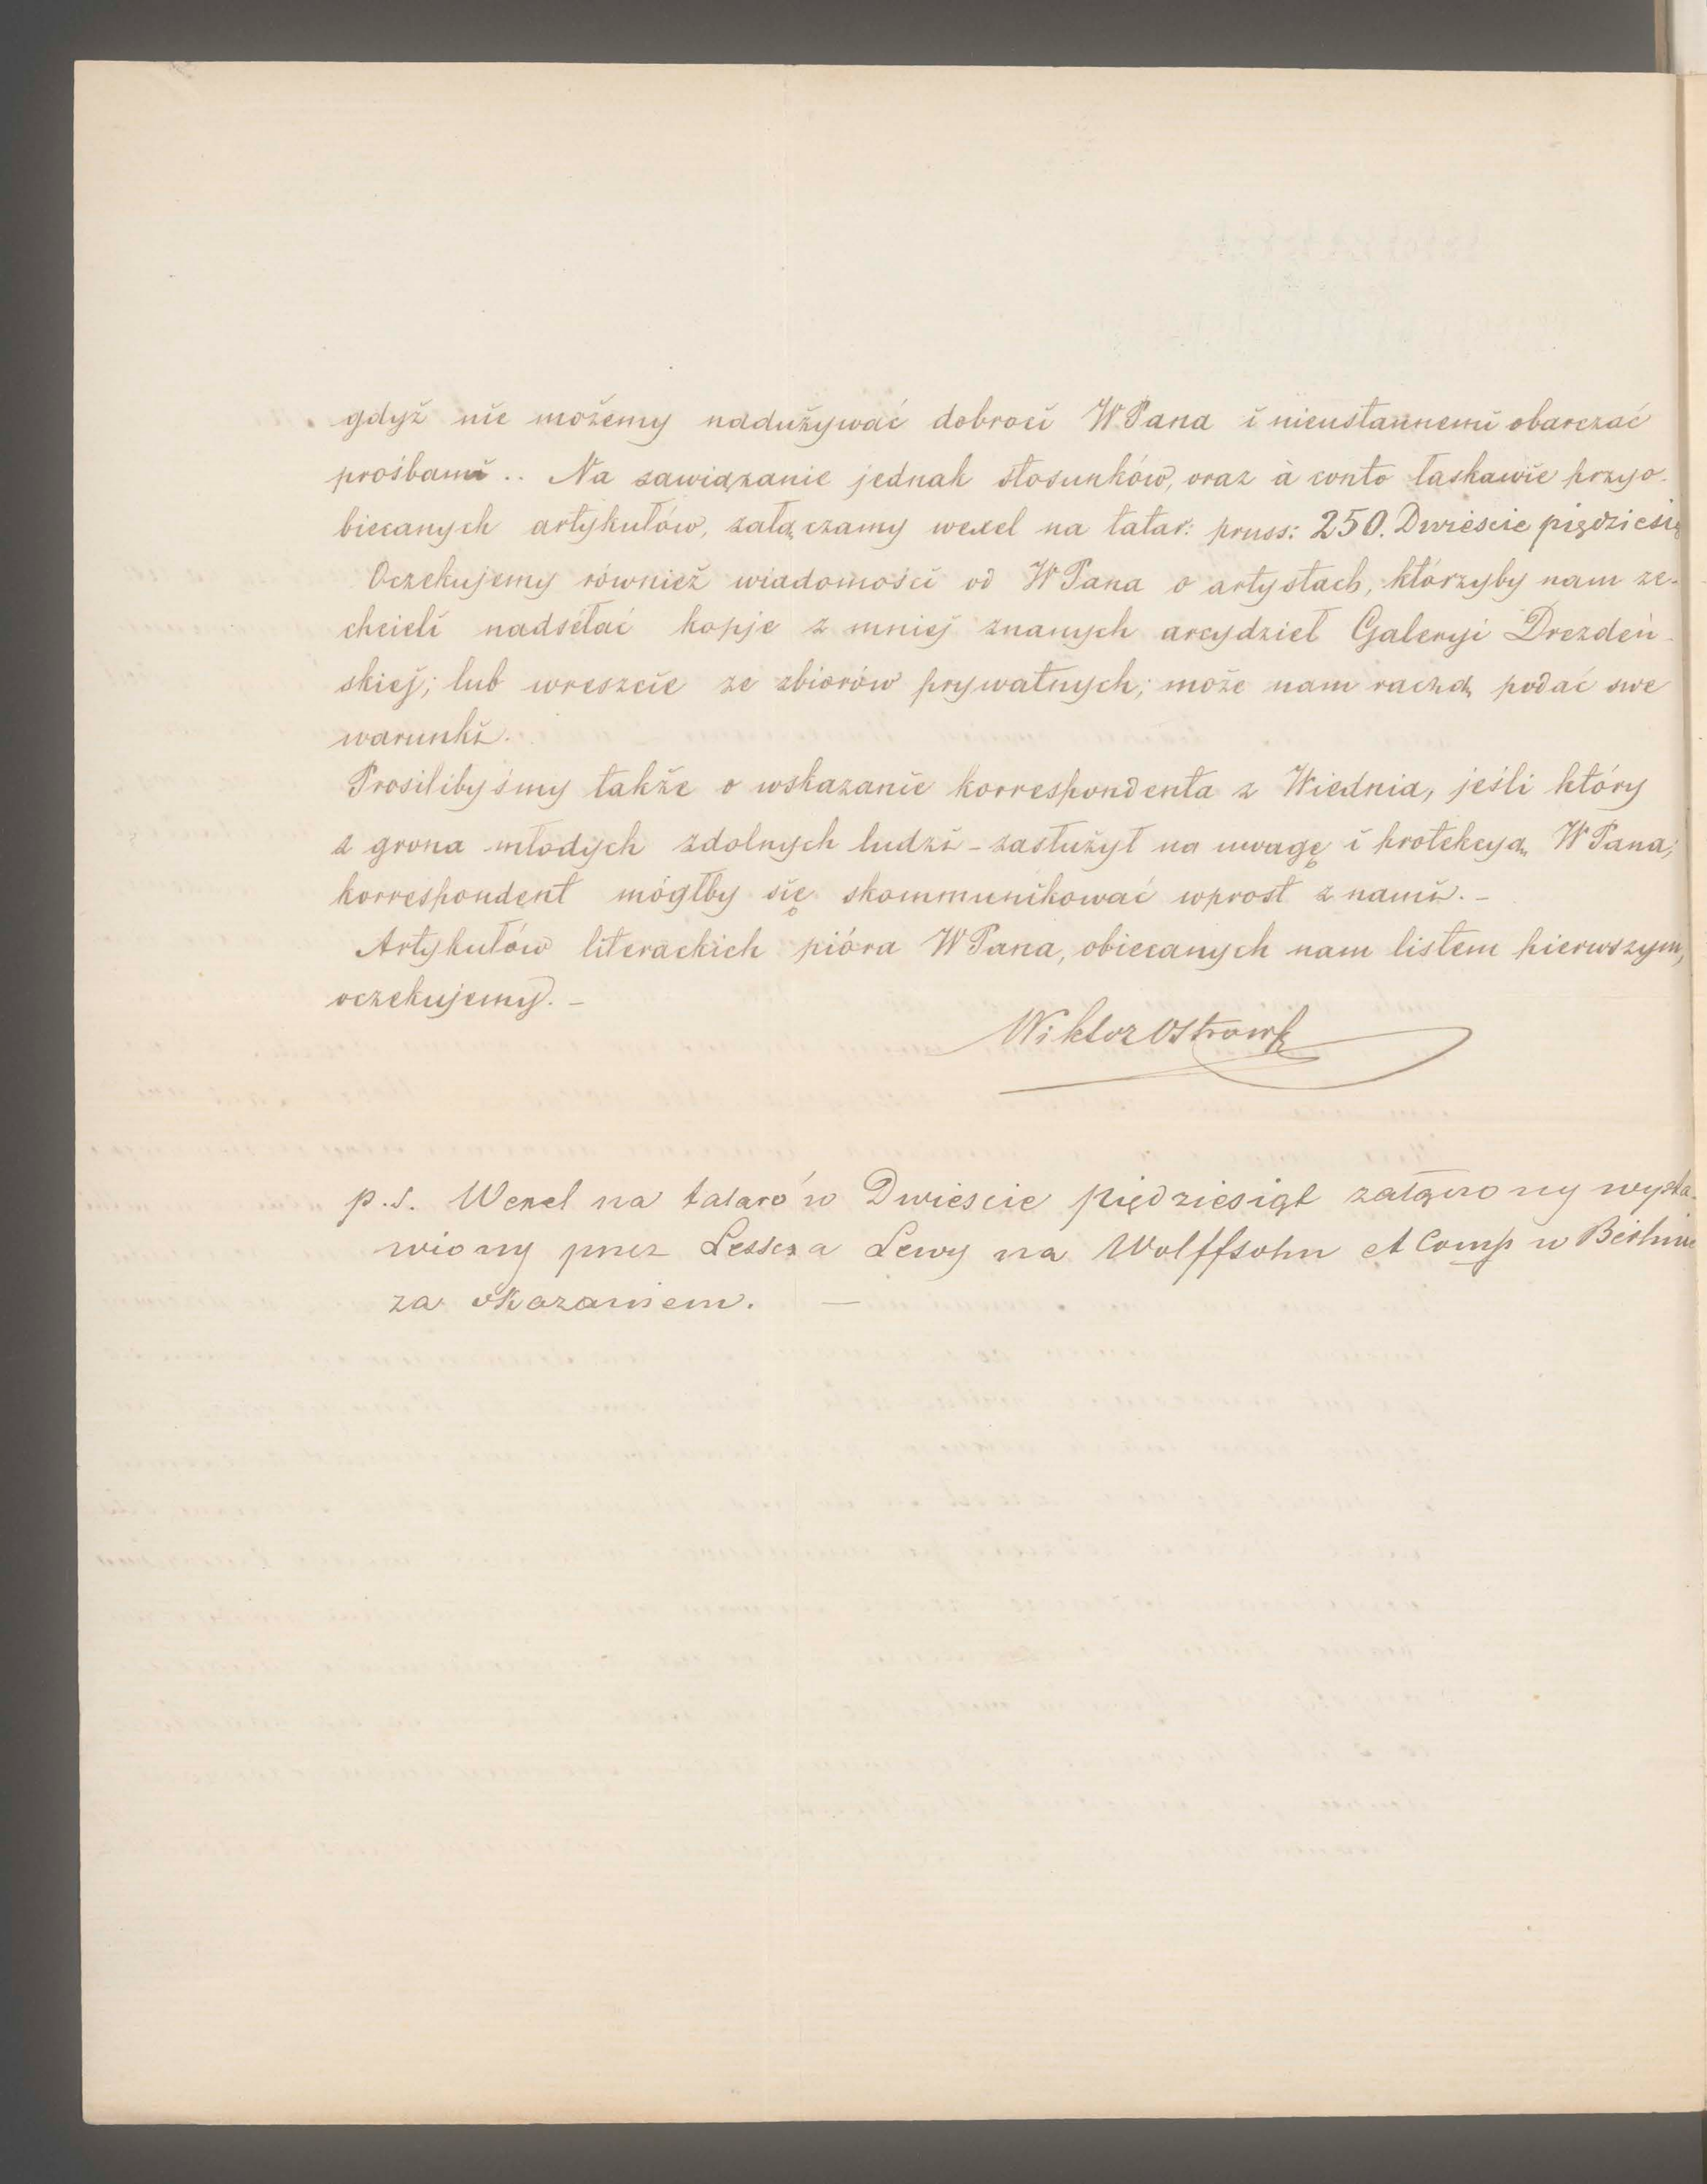 gdyż nie możemy nadużywać dobroci WPana i nieustannemi obarczać
prośbami .. Na zawiązanie jednak stosunków, oraz à conto łaskawie przyo-
biecanych artykułów, załączamy wexel na talar: pruss: 250. Dwieście pięćdziesią
Oczekujemy również wiadomości od WPana o artystach, którzyby nam ze-
chcieli nadsełać kopje z mniej znanych arcydzieł Galeryi Drezdeń-
skiej; lub wreszcie ze zbiorów prywatnych; może nam raczą podać swe
warunki.
Prosilibyśmy także o wskazanie korrespondenta z Wiednia, jeśli który
z grona młodych zdolnych ludzi - zasłużył na uwagę i protekcyą WPana;
korrespondent mógłby się skommunikować wprost z nami. -
Artykułów literackich pióra WPana, obiecanych nam listem pierwszym,
oczekujemy. -
Wiktor Ostrowsk
p.s. Wexel na talarów Dwieście pięćdziesiąt załączony wysta-
wiony przez Lessera Lewy na Wolffsohn et Comp w Berlinie
za okazaniem. -